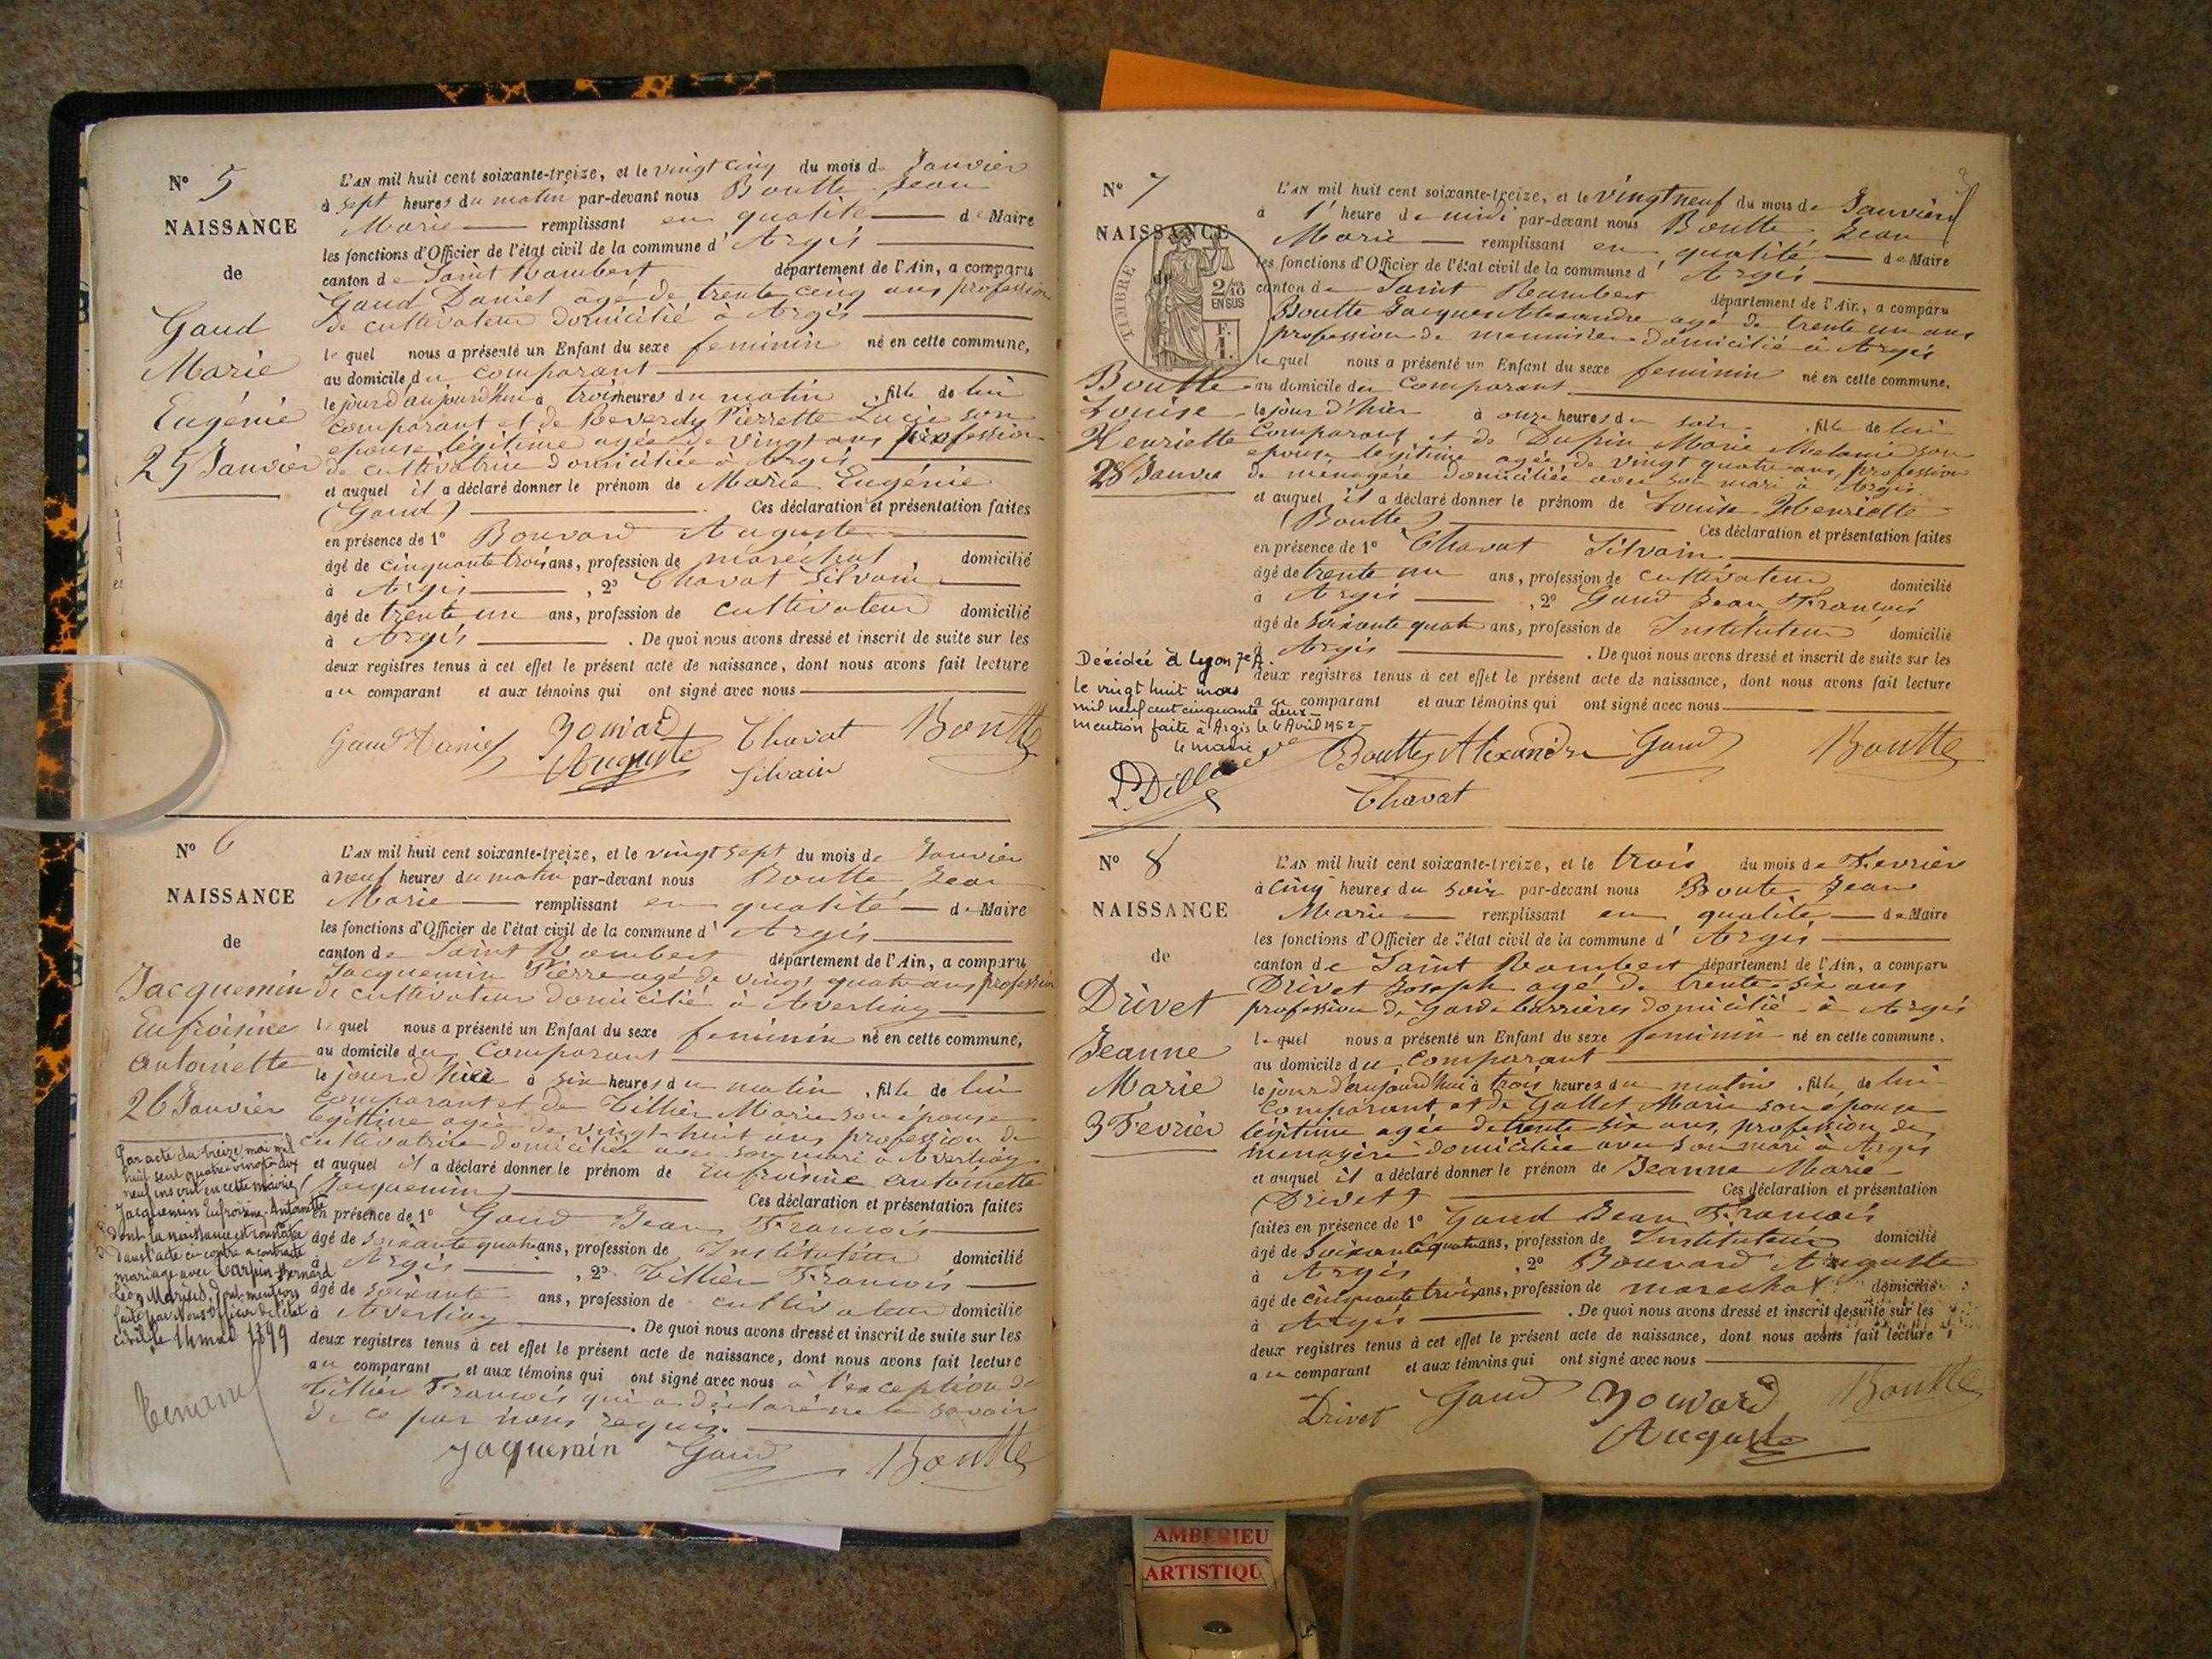 N° 5
NAISSANCE
de
Gaud
Marie
Eugénie
25 Janvier
L'AN mil huit cent soixante-treize, et le vingt cinq du mois de Janvier
à sept heures du matin par-devant nous Boutte Jean
Marie remplissant en qualité de Maire
les fonctions d'Officier de l'état civil de la commune d'Argis
canton de Saint Rambert département de l'Ain, a comparu
Gaud Daniel âgé de trente cinq ans profession
de cultivateur domicilié à Argis
lequel nous a présenté un Enfant du sexe feminin né en cette commune,
au domicile du comparant
le jour d'aujourd'hui à trois heures du matin, fille de lui
comparant et de Reverdy Pierrette Lucie son
epouse légitime agée de vingt ans profession
de cultivatrice domiciliée à Argis
et auquel il a déclaré donner le prénom de Marie Eugénie
(Gaud) Ces déclaration et présentation faites
en présence de 1° Bouvard Auguste
âgé de cinquante trois ans, profession de maréchal domicilié
à Argis, 2° Chavat Silvain
âgé de trente un ans, profession de cultivateur domicilié
à Argis. De quoi nous avons dressé et inscrit de suite sur les
deux registres tenus à cet effet le présent acte de naissance, dont nous avons fait lecture
au comparant et aux témoins qui ont signé avec nous
Gaud Daniel Bouvard Auguste Chavat Silvain Boutte
N° 6
NAISSANCE
de
Jacquemin
Eufroisine
Antoinette
26 Janvier
L'AN mil huit cent soixante-treize, et le vingt sept du mois de Janvier
à neuf heures du matin par-devant nous Boutte Jean
Marie remplissant en qualité de Maire
les fonctions d'Officier de l'état civil de la commune d'Argis
canton de Saint Rambert département de l'Ain, a comparu
Jacquemin Pierre agé de vingt quatre ans profession
de cultivateur domicilié à Averliay
lequel nous a présenté un Enfant du sexe feminin né en cette commune,
au domicile du comparant
le jour d'hier à six heures du matin, fille de lui
comparant et de Tillier Marie son épouse
légitime agée de vingt-huit ans profession de
cultivatrice domiciliée avec son mari à Averliay
et auquel il a déclaré donner le prénom de Eufroisine Antoinette
(Jacquemin) Ces déclaration et présentation faites
en présence de 1° Gaud Jean François
âgé de soixante quatre ans, profession de Instituteur domicilié
à Argis, 2° Tillier François
âgé de soixante ans, profession de cultivateur domicilié
à Averliay. De quoi nous avons dressé et inscrit de suite sur les
deux registres tenus à cet effet le présent acte de naissance, dont nous avons fait lecture
au comparant et aux témoins qui ont signé avec nous à l'exception de
Tillier François qui a déclaré ne le savoir
de ce par nous requis.
Jaquemin Gaud Boutte
Par acte du treize mai mil
huit cent quatre vingt dix
neuf inscrit en cette mairie
Jacquemin Eufroisine Antoinette
dont la naissance est constatée
dans l'acte ci-contre a contracté
mariage avec Carpin Bernard
Léon Marius, dont mention
faite par Nous Officier de l'état
civil le 14 mai 1899
N° 7
NAISSANCE
de
TIMBRE
2/10
EN SUS
Boutte
Louise
Henriette
28 Janvier
L'AN mil huit cent soixante-treize, et le vingt neuf du mois de Janvier
à 1 heure de midi par-devant nous Boutte Jean
Marie remplissant en qualité de Maire
les fonctions d'Officier de l'état civil de la commune d'Argis
canton de Saint Rambert département de l'Ain, a comparu
Boutte Jacques Alexandre agé de trente un ans
profession de menuisier domicilié à Argis
lequel nous a présenté un Enfant du sexe feminin né en cette commune.
au domicile du comparant
le jour d'hier à onze heures du soir, fille de lui
comparant et de Dupin Marie Melanie son
epouse légitime agée de vingt quatre ans, profession
de ménagère domiciliée avec son mari à Argis
et auquel il a déclaré donner le prénom de Louise Henriette
(Boutte) Ces déclaration et présentation faites
en présence de 1° Chavat Silvain
âgé de trente un ans, profession de cultivateur domicilié
à Argis, 2° Gaud Jean François
âgé de soixante quatre ans, profession de Instituteur domicilié
à Argis. De quoi nous avons dressé et inscrit de suite sur les
deux registres tenus à cet effet le présent acte de naissance, dont nous avons fait lecture
au comparant et aux témoins qui ont signé avec nous
Boutte Alexandre Gaud Boutte
Chavat
Décédée à Lyon 7e A.
le vingt huit mars
mil neuf cent cinquante deux
mention faite à Argis le 4 Avril 1952
le maire
N° 8
NAISSANCE
de
Drivet
Jeanne
Marie
3 Fevrier
L'AN mil huit cent soixante-treize, et le trois du mois de Fevrier
à cinq heures du soir par-devant nous Boute Jean
Marie remplissant en qualité de Maire
les fonctions d'Officier de l'état civil de la commune d'Argis
canton de Saint Rambert département de l'Ain, a comparu
Drivet Joseph agé de trente six ans
profession de garde barrières domicilié à Argis
lequel nous a présenté un Enfant du sexe feminin né en cette commune,
au domicile du comparant
le jour d'aujourd'hui à trois heures du matin, fille de lui
comparant et de Gallet Marie son épouse
légitime agée de trente six ans, profession de
ménagère domiciliée avec son mari à Argis
et auquel il a déclaré donner le prénom de Jeanne Marie
(Drivet) Ces déclaration et présentation
faites en présence de 1° Gaud Jean François
âgé de soixante quatre ans, profession de Instituteur domicilié
à Argis, 2° Bouvard Auguste
âgé de cinquante trois ans, profession de marechal domicilié
à Argis. De quoi nous avons dressé et inscrit de suite sur les
deux registres tenus à cet effet le présent acte de naissance, dont nous avons fait lecture
au comparant et aux témoins qui ont signé avec nous
Drivet Gaud Bouvard Auguste Boutte
AMBERIEU
ARTISTIQU